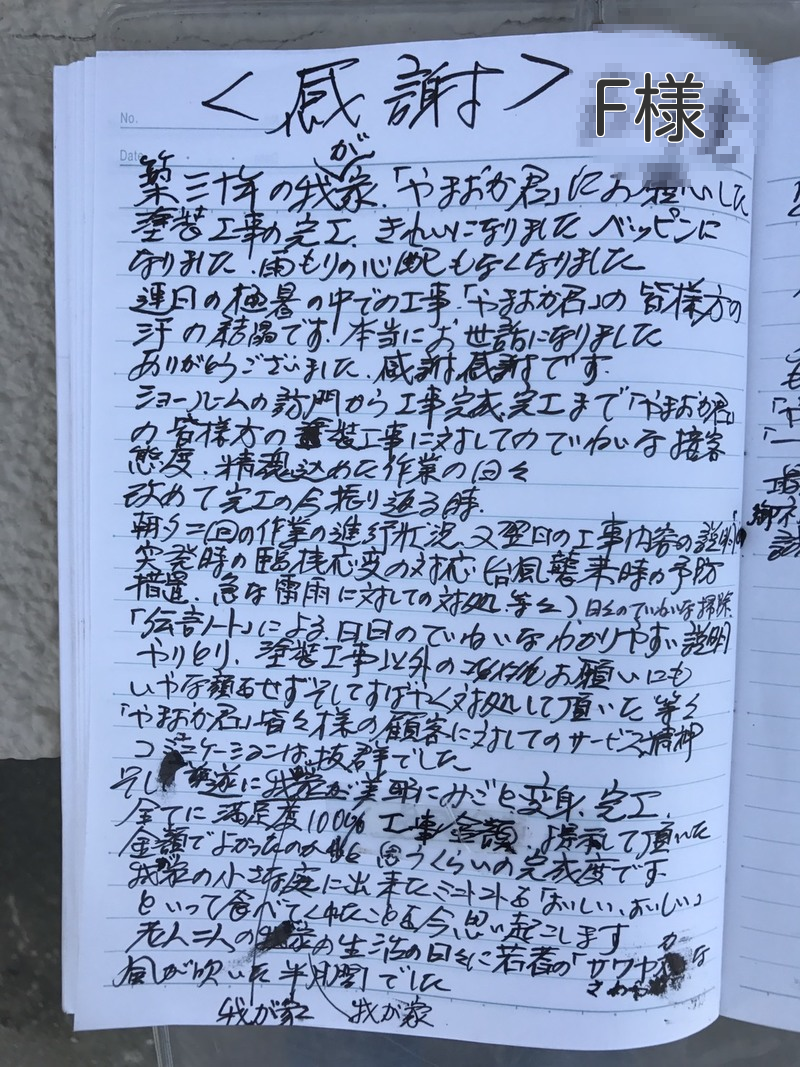 <感謝>
F様
No.
Date
が
築三十年の我家、「やまおか君」にお願いした
塗装工事の完工、きれいになりました ベッピンに
なりました、雨もりの心配もなくなりました
連日の極暑の中での工事、「やまおか君」の皆様方の
汗の結晶です、本当にお世話になりました
ありがとうございました、感謝感謝です。
ショールームの訪門から工事完成、完工まで「やまおか君」
の皆様方の装工事に対してのていねいな接客
態度、精魂込めた作業の日々
改めて完工の今振り返る時、
朝夕二回の作業の進行状況、又翌日の工事内容の説明
突発時の臨機応変の対応(台風襲来時の予防
措置、急な雷雨に対しての対処等々)日々のていねいな掃除
「伝言ノート」による、日日のていねいなわかりやすい説明
やりとり、塗装工事以外のお願いにも
いやな顔もせずそしてすばやく対処して頂いた等々
「やまおか君」皆々様の顧客に対してのサービス精神
コミニケーションは抜群でした
そして 我家が美形にみごと変身、完工、
全てに満足度100% 工事金額、提示して頂いた
金額でよかったのかな 思うくらいの完成度です
我家の小さな庭に出来たミニトマトを「おいしい、おいしい」
といって食べてくれたことを今思い起こします
老人二人の我家の生活の日々に若者の「サワヤカな
さわやか
風が吹いた半月間でした
我が家 我が家